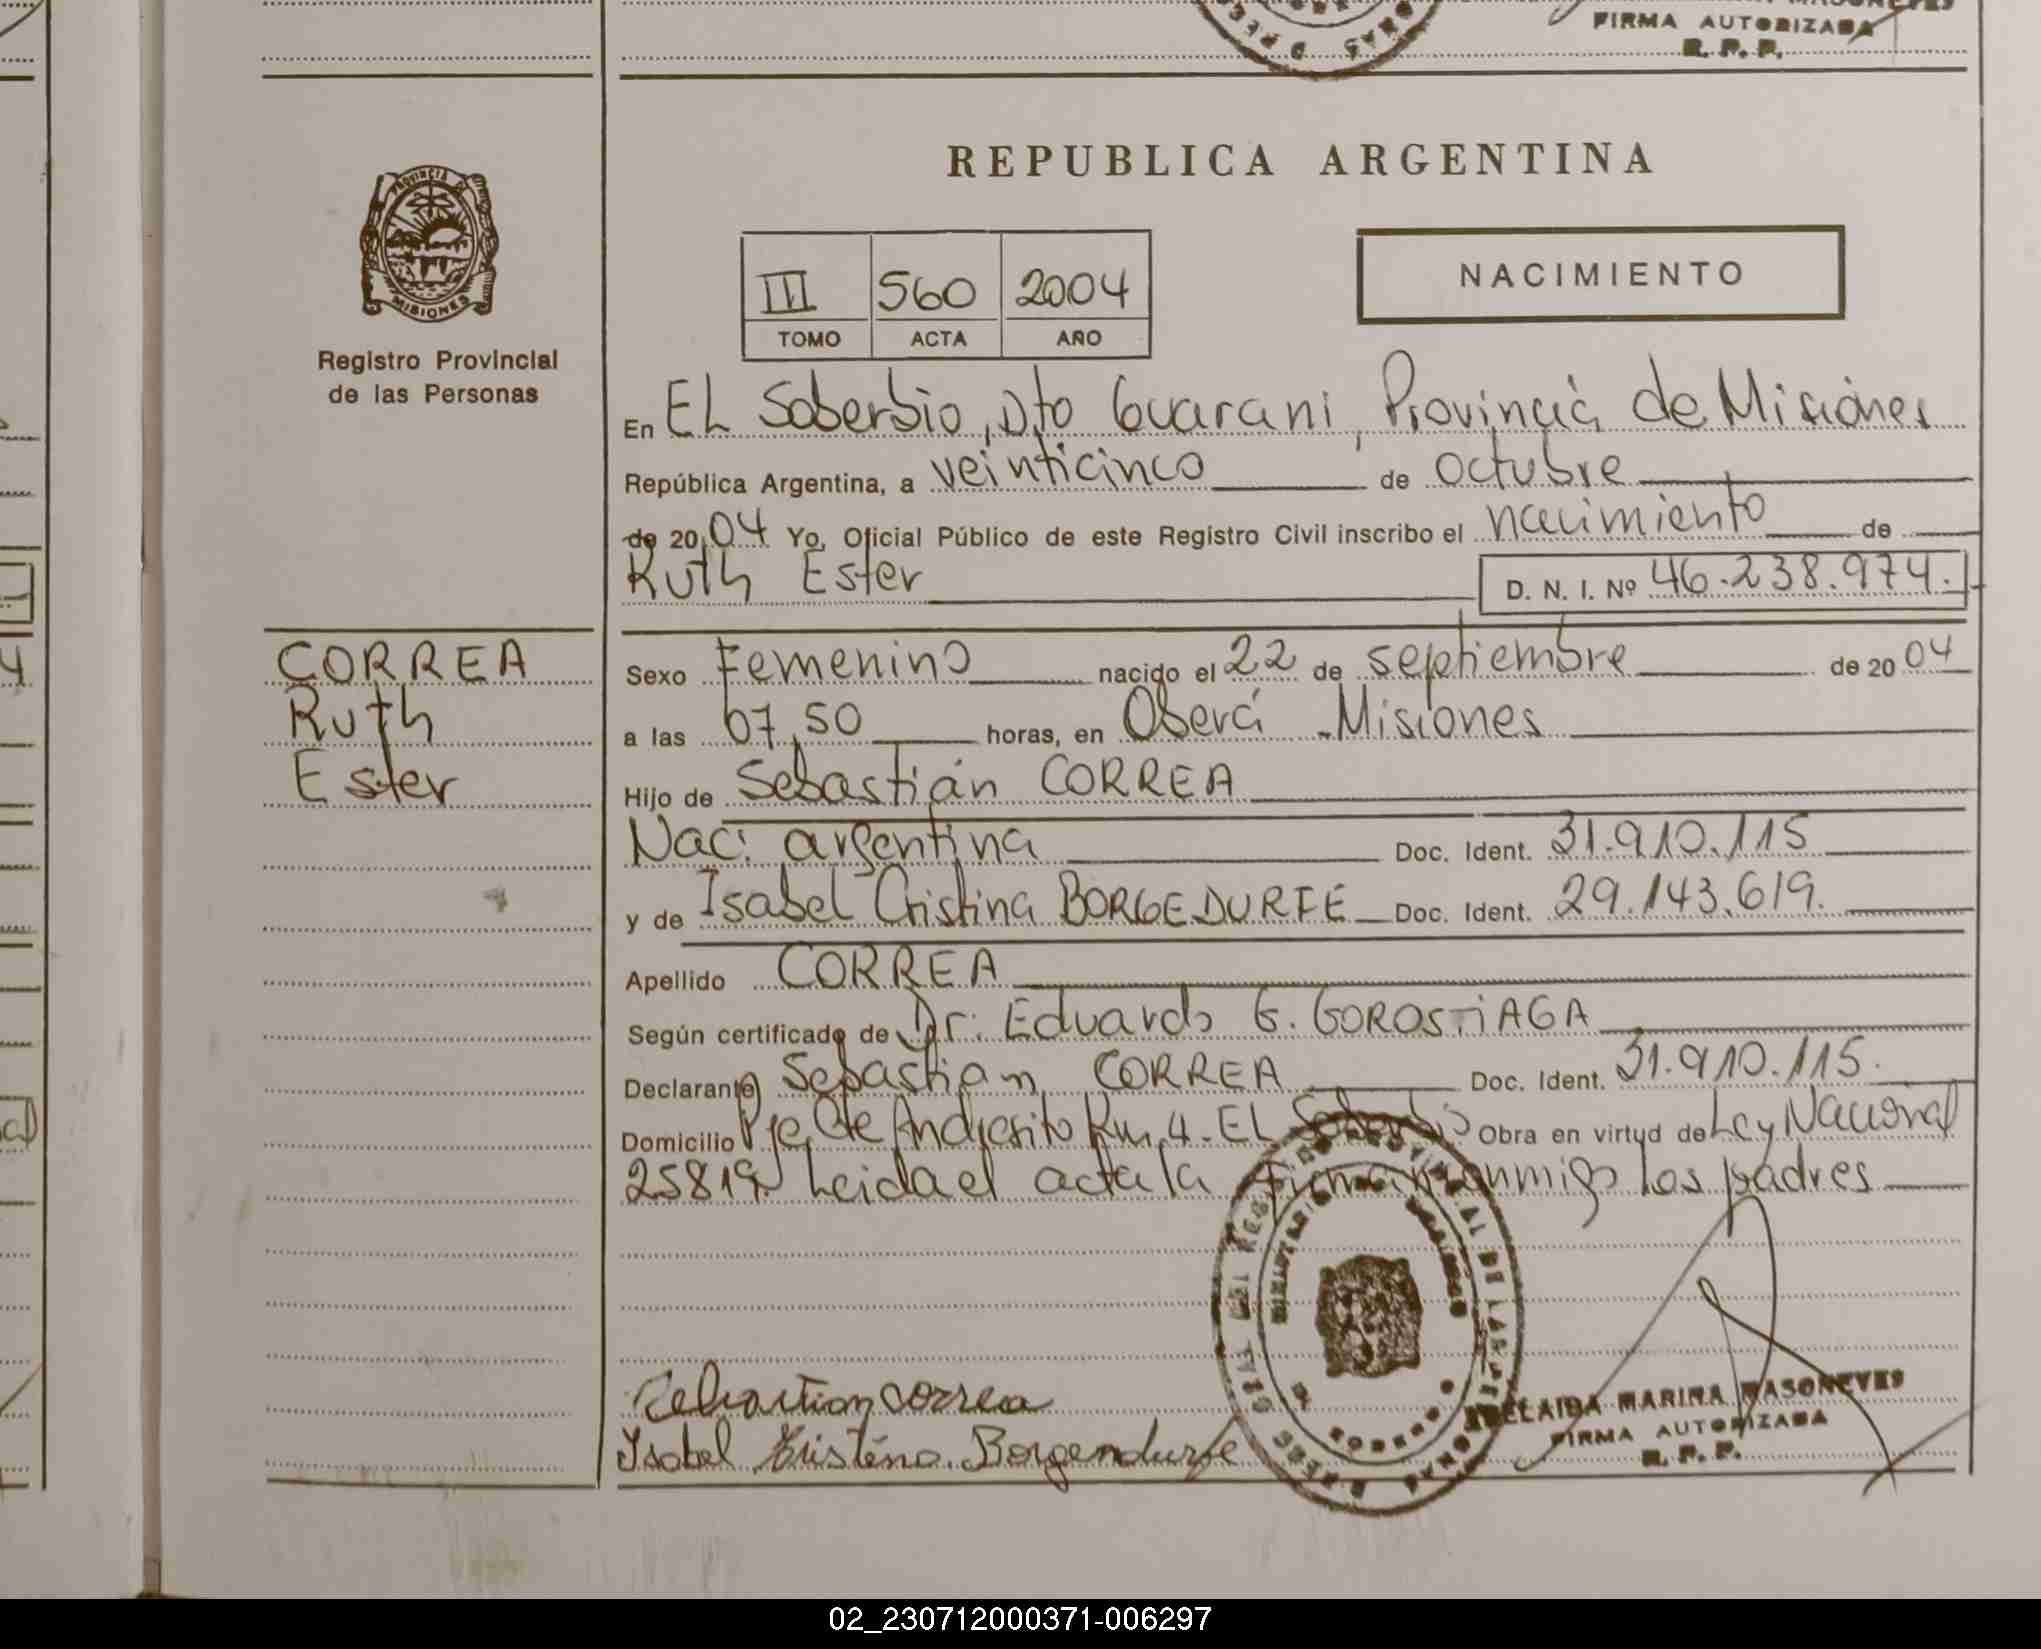 FIRMA AUTORIZADA
R. P. P.
REPUBLICA ARGENTINA
PROVINCIA DE
MISIONES
Registro Provincial
de las Personas
III 560 2004
TOMO ACTA AÑO
NACIMIENTO
En EL Soberbio, Dto Guarani, Provincia de Misiones
República Argentina, a veinticinco de octubre
de 20 04 Yo, Oficial Público de este Registro Civil inscribo el nacimiento de
Ruth Ester D. N. I. Nº 46.238.974.
CORREA
Ruth
Ester
Sexo Femenino nacido el 22 de septiembre de 20 04
a las 07,50 horas, en Oberá - Misiones
Hijo de Sebastián CORREA
Nac: argentina Doc. Ident. 31.910.115
y de Isabel Cristina BORGEDURFE Doc. Ident. 29.143.619.
Apellido CORREA
Según certificado de Dr: Eduardo G. GOROSTIAGA
Declarante Sebastian CORREA Doc. Ident. 31.910.115.
Domicilio Pje Cte Andresito Km 4. EL Soberbio Obra en virtud de Ley Nacional
25819. Leida el acta la firman conmigo los padres
Sebastian correa
Isabel Kristina Borgendurfe
ADELAIDA MARINA MASONEVES
FIRMA AUTORIZADA
R. P. P.
02_230712000371-006297